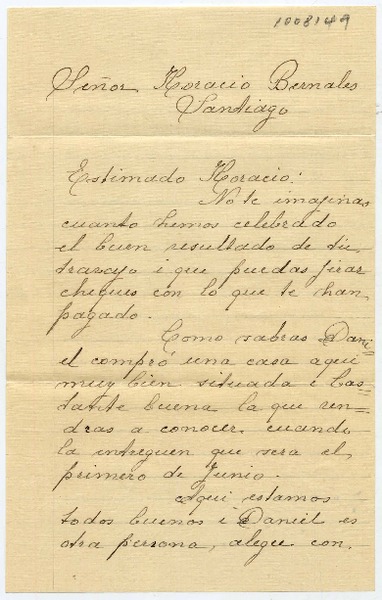 1008149
Señor Horacio Bernales
Santiago
Estimado Horacio:
No te imajinas
cuanto hemos celebrado
el buen resultado de tu
travajo i que puedas jirar
cheques con lo que te han
pagado.
Como sabras Dani=
el compró una casa aqui
muy bien situada i bas=
tante buena la que ven=
dras a conocer cuando
la intreguen que sera el
primero de Junio.
Aqui estamos
todos buenos i Daniel es
otra persona, alegre con,